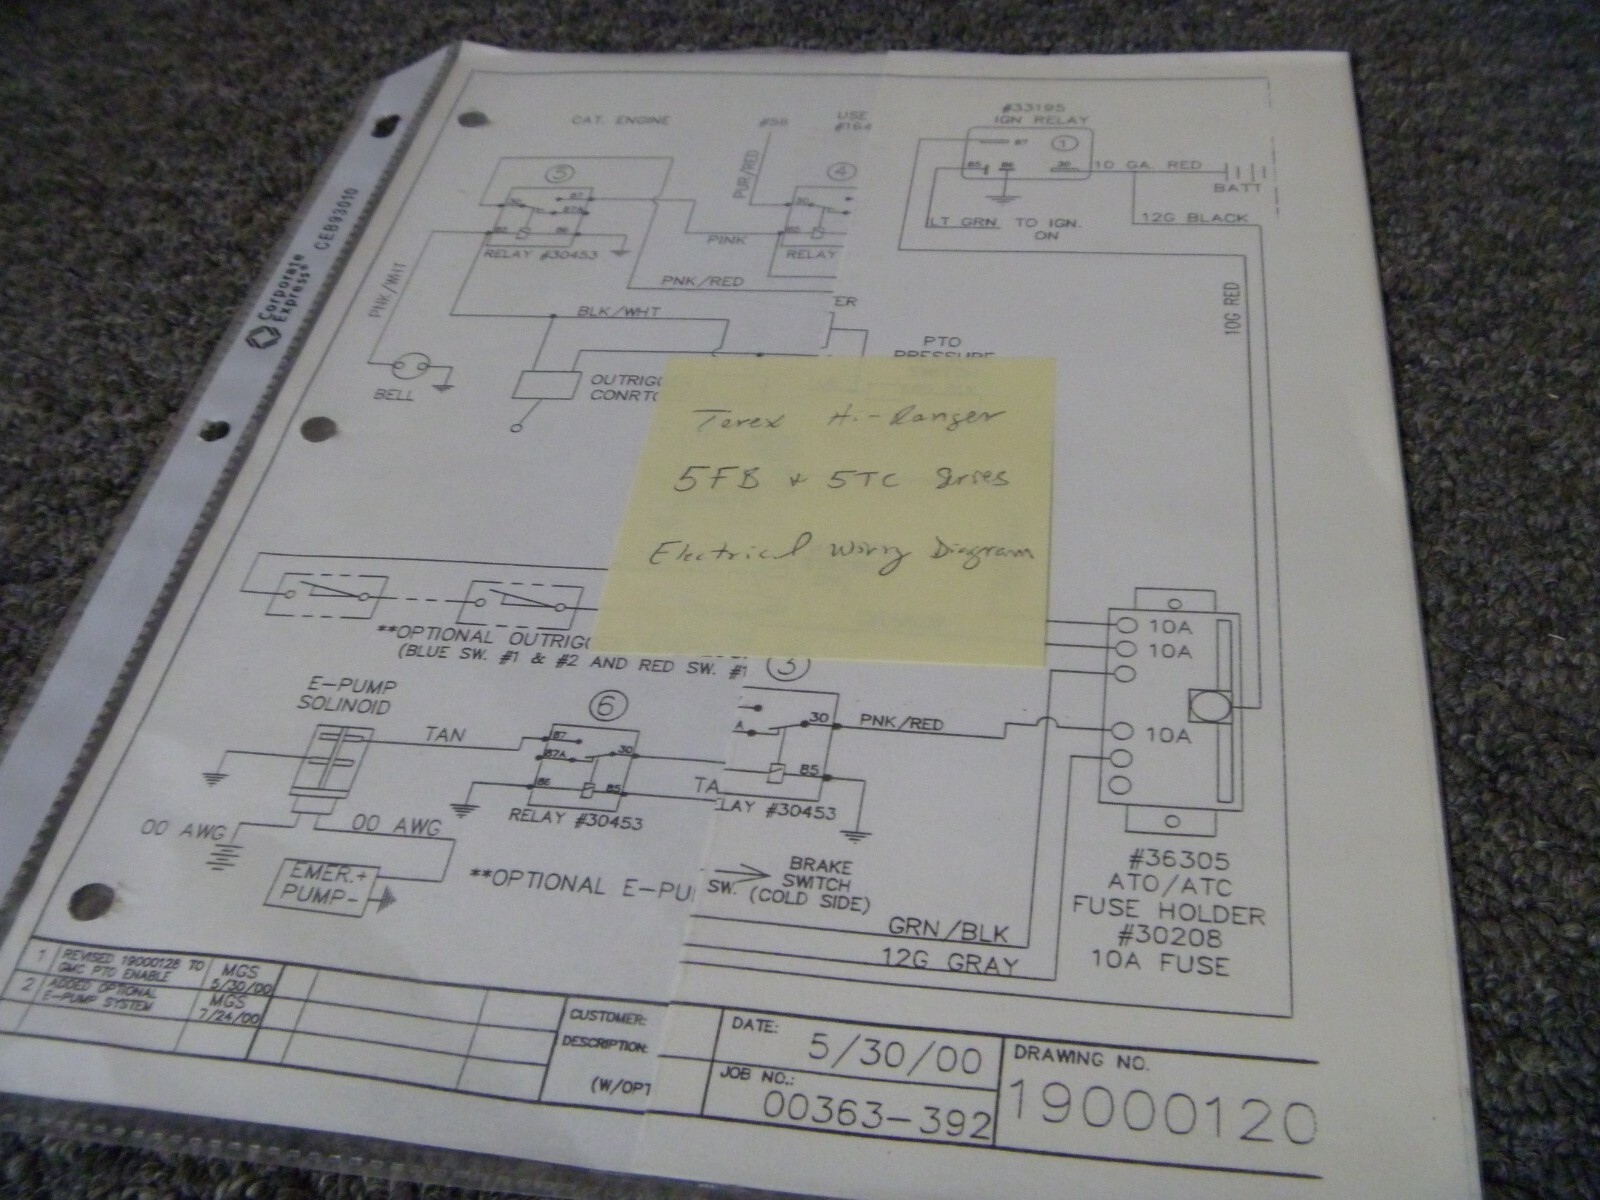 Corporate
Express®
CEB93010
CAT. ENGINE
#56
USE
#164
#33195
IGN RELAY
PUR/RED
5
4
1
87
85
86
30
10 GA. RED
BATT
12G BLACK
LT GRN
TO IGN.
ON
30
87
87A
85
86
RELAY #30453
30
85
RELAY
PINK
PNK/RED
PNK/WHT
BLK/WHT
ER
10G RED
PTO
PRESSURE
BELL
OUTRIG
CONRTO
Terex Hi-Ranger
5FB & 5TC Series
Electrical Wiring Diagram
**OPTIONAL OUTRIG
(BLUE SW. #1 & #2 AND RED SW. #1
3
10A
10A
10A
E-PUMP
SOLINOID
TAN
6
87
87A
30
86
85
RELAY #30453
TA
A
30
85
LAY #30453
PNK/RED
00 AWG
00 AWG
EMER.+
PUMP-
**OPTIONAL E-PU
BRAKE
SWITCH
SW. (COLD SIDE)
GRN/BLK
12G GRAY
#36305
ATO/ATC
FUSE HOLDER
#30208
10A FUSE
1 REVISED 19000128 TO
GMC PTO ENABLE
MGS
5/30/00
2 ADDED OPTIONAL
E-PUMP SYSTEM
MGS
7/24/00
CUSTOMER:
DESCRIPTION:
(W/OPT
DATE:
5/30/00
JOB NO.:
00363-392
DRAWING NO.
19000120